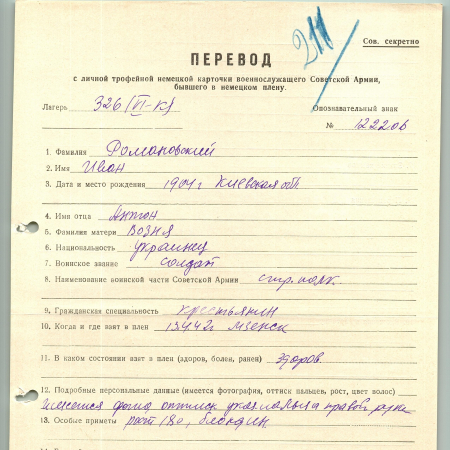 211
Сов. секретно
ПЕРЕВОД
с личной трофейной немецкой карточки военнослужащего Советской Армии,
бывшего в немецком плену.
Лагерь 326 (VI-К) Опознавательный знак
№ 122206
1. Фамилия Романовский
2. Имя Иван
3. Дата и место рождения 1904 г Киевская обл
4. Имя отца Антон
5. Фамилия матери Возня
6. Национальность украинец
7. Воинское звание солдат
8. Наименование воинской части Советской Армии стр. полк.
9. Гражданская специальность крестьянин
10. Когда и где взят в плен 13.4.42г Мценск
11. В каком состоянии взят в плен (здоров, болен, ранен) здоров.
12. Подробные персональные данные (имеется фотография, оттиск пальцев, рост, цвет волос)
Имеется фото, оттиск указ. пальца правой руки
13. Особые приметы рост 180, блондин